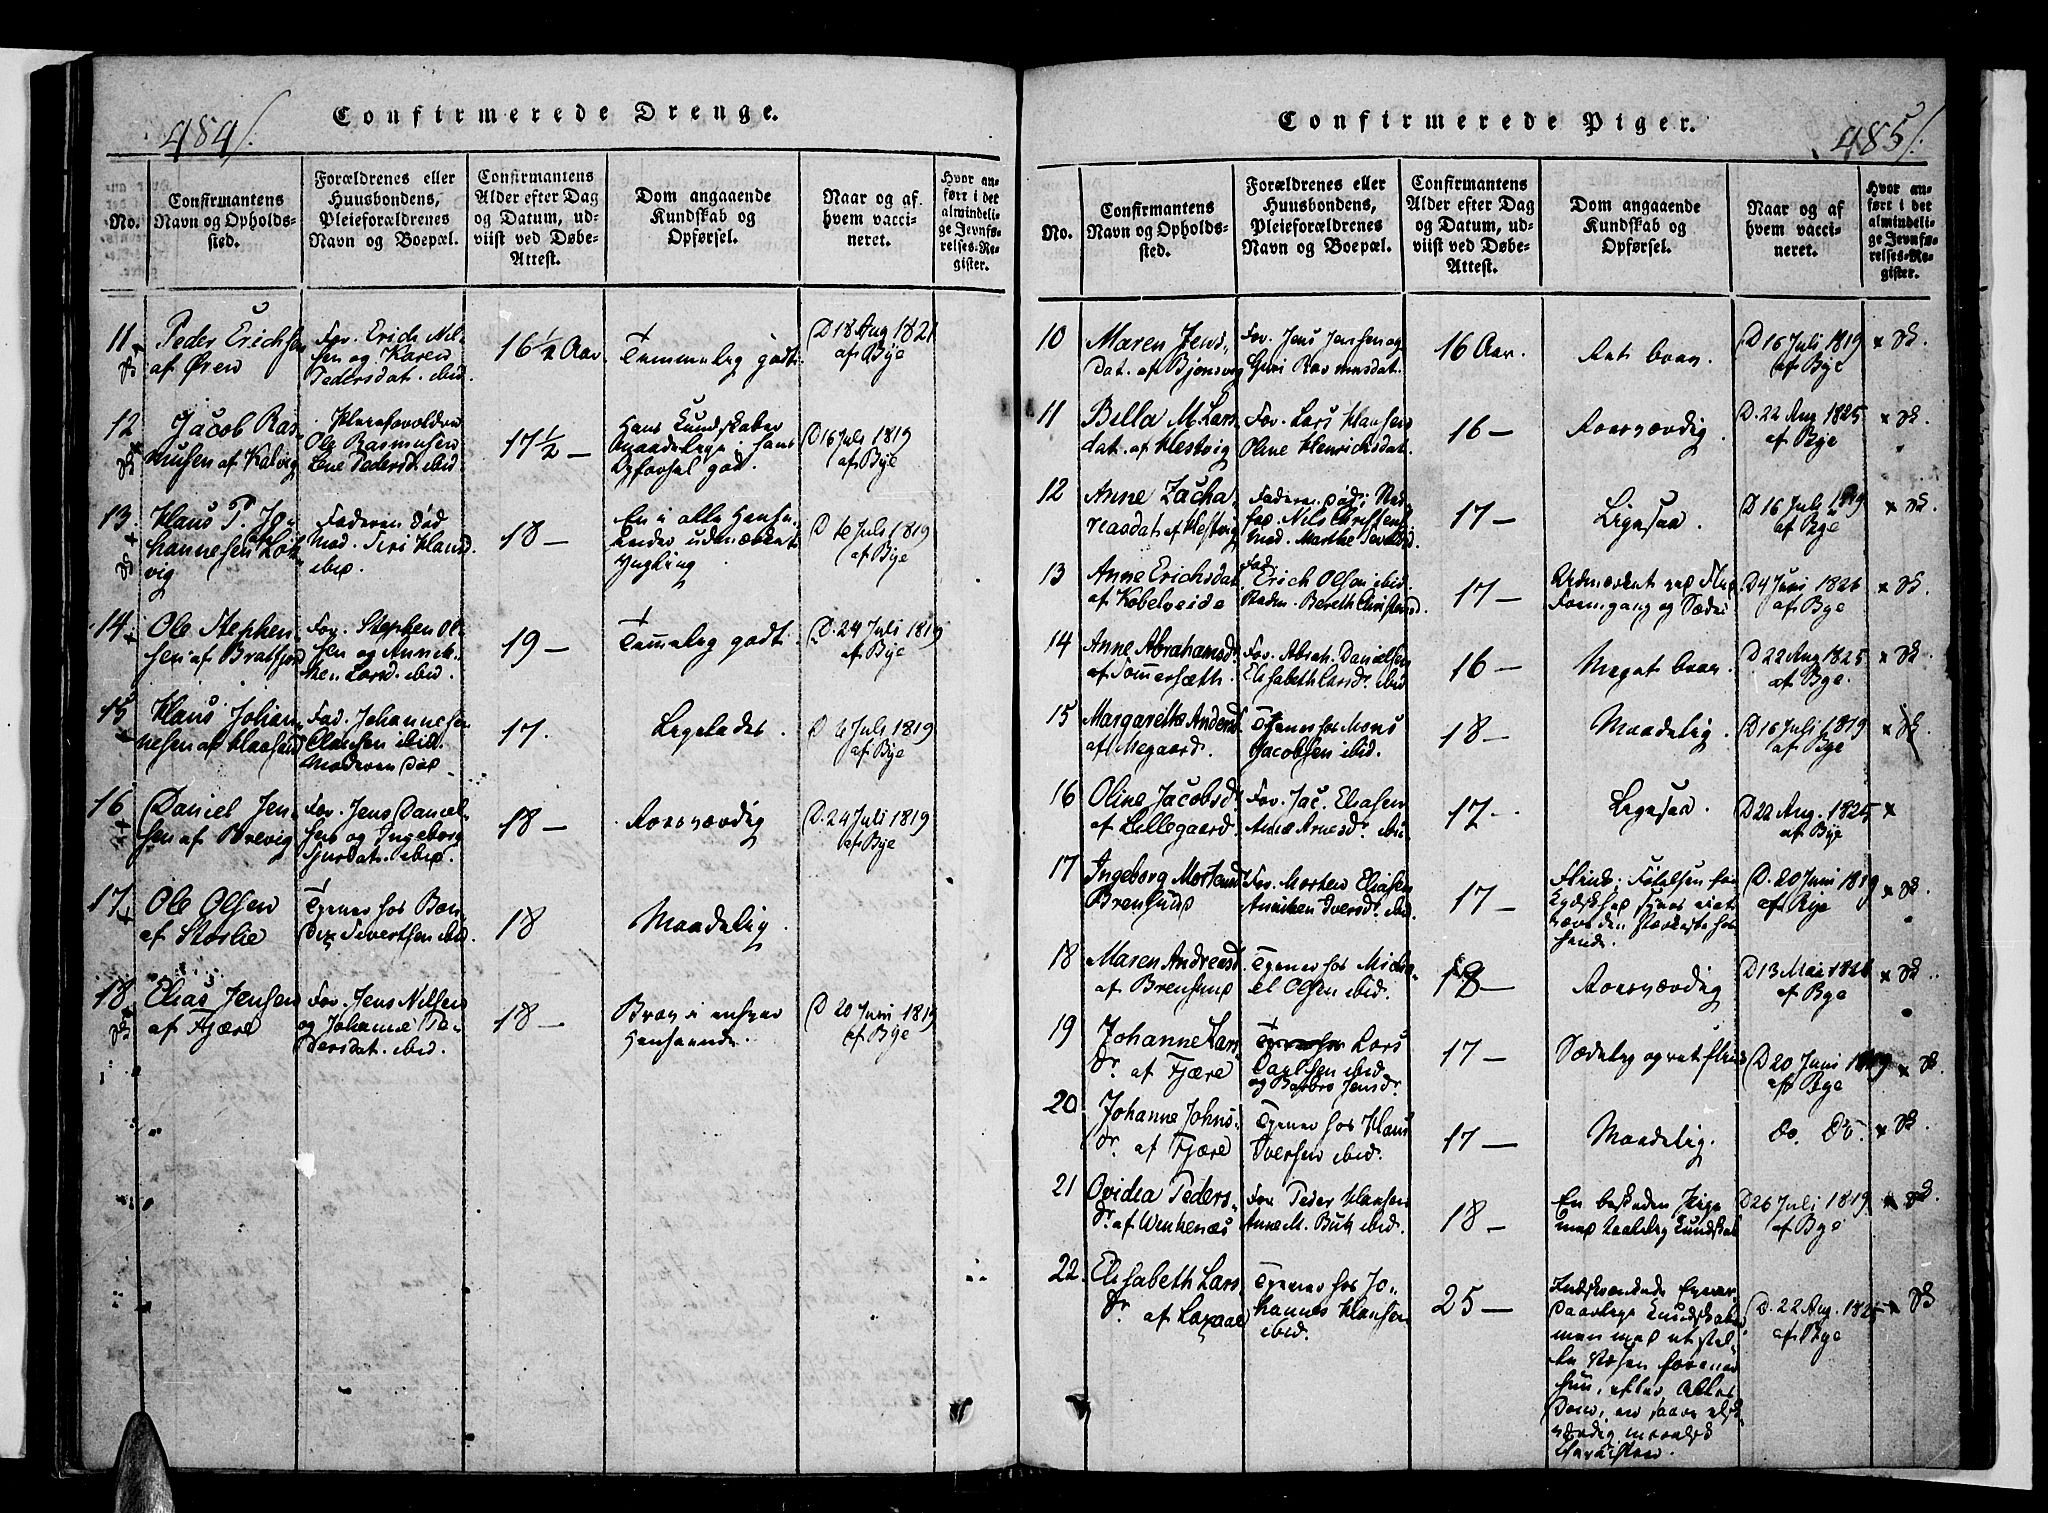 484/.
Confirmerede Drenge.
No.
Confirmantens
Navn og Opholds-
sted.
Forældrenes eller
Huusbondens,
Pleieforældrenes
Navn og Boepæl.
Confirmantens
Alder efter Dag
og Datum, ud-
viist ved Døbe-
Attest.
Dom angaaende
Kundskab og
Opførsel.
Naar og af
hvem vacci-
neret.
Hvor an-
ført i det
almindeli-
ge Jevnfø-
relses-Re-
gister.
11
Peder Erichsen
af Øien
For. Erich Nil-
sen og Karen
Pedersdat. ibid.
16 1/2 Aar
Temmelig godt.
D 18 Aug 1821
af Bye
12
Jacob Ras-
musen af Kalvig
Pleieforældre
Ole Rasmusen
Lene Pedersd. ibid
17 1/2 —
Hans Kundskaber
maadelige, hans
Opførsel god.
D 16 Juli 1819
af Bye
13.
Klaus P. Jo-
hannesen Løk-
vig
Faderen død
Mod. Siri Klausd.
ibid
18 —
En i alle Hense-
ender udmærket
Yngling
D. 16 Juli 1819
af Bye
14
Ole Stephen-
sen af Bratfjord
For. Stephen Ol-
sen og Annik-
ken Larsd. ibid.
19 —
Temmelig godt.
D. 24 Juli 1819
af Bye
15
Klaus Johan-
nesen af
Fad. Johannesen
Clausen ibid.
Moderen død —
17.
Ligeledes.
D 16 Juli 1819
af Bye
16
Daniel Jen-
sen af Brevig
For. Jens Daniel-
sen og Ingeborg
ibid.
18 —
Roesværdig
D. 24 Juli 1819
af Bye
17.
Ole Olsen
af Storlie
Tjener hos
Sivertsen ibid.
18
Maadelig.
18.
Elias Jensen
af Fjære
For. Jens Nilsen
og Johanna Pe-
dersdat. ibid.
18 —
Brav i enhver
Henseende.
D 20 Juni 1819
af Bye
485/.
Confirmerede Piger.
No.
Confirmantens
Navn og Opholds-
sted.
Forældrenes eller
Huusbondens,
Pleieforældrenes
Navn og Boepæl.
Confirmantens
Alder efter Dag
og Datum, ud-
viist ved Døbe-
Attest.
Dom angaaende
Kundskab og
Opførsel.
Naar og af
hvem vacci-
neret.
Hvor an-
ført i det
almindeli-
ge Jevnfø-
relses-Re-
gister.
10
Maren Jens-
dat. af Bjønsvig
For. Jens Jensen og
Guri Rasmusdat.
16 Aar.
Ret brav.
D 16 Juli 1819
af Bye
11
Bella M. Lars-
dat. af Hestvig
For. Lars Hansen
Oline Henrichsdat.
16 —
Roesværdig
D. 22 Aug. 1825
af Bye
12
Anne Zacha-
reasdat af Hestvig
Faderen død;
Nils Christens.
Mod. Marthe
17 —
Ligesaa.
D 16 Juli 1819
af Bye
13
Anne Erichsdat
af Kobelveide
Fad.
Erich Olsen ibid.
Moden. Bereth Christensd.
17 —
Udmærket ved Flid
Fremgang og Sæder
D 4 Juni 1826
af Bye
14
Anne Abrahamsd.
af Tømmersæth.
For. Abrah. Danielsen
Elisabeth Larsd. ibid
16 —
Meget brav.
D 22 Aug 1825
af Bye.
15
Margarethe Andersd
af Megaard.
Tjener hos Mons
Jacobsen ibid.
18 —
Maadelig.
D 16 Juli 1819
af Bye
16
Oline Jacobsd.
af Lillegaard.
For. Jac. Eliasen
Anne Arnesd. ibid
17 —
Ligesaa.
D 22 Aug. 1825
af Bye
17
Ingeborg Mortensd
Brensund
For. Morten Eliasen
Anniken Iversd. ibid.
17 —
Flink; Følelsen for
Lydighed synes ikke
være den stærkeste hos
hende.
D. 20 Juni 1819
af Bye
18
Maren Andreasd
af Brensund
Tjener hos Mich-
el Olsen ibid.
18 —
Roesværdig
D 13 Mai 1826
af Bye
19
Johanne Lars-
dr. af Fjære
Lars
Carlsen ibid
og Barbro Jensdr.
17 —
Sædelig og ret flink
D 20 Juni 1819
af Bye
20
Johanne Johns-
dr. af Fjære
Tjener hos Klaus
Iversen ibid.
17 —
Maadelig.
Do. Do.
21
Ovidia Peders-
dr. af Wenkenæs
For Peder Hansen
Anne M. Butz ibid.
18 —
En beskeden Pige
med taalelig Kundskab
D 26 Juli 1819.
af Bye
22.
Elisabeth Lars-
dr. af Laxaae
Tjener hos Jo-
hannes Klausen
ibid.
25 —
Indskrænkede Evner
daarlige Kundskaber
men med et stil-
le Væsen forener
hun, efter Alles
Dom, en saare elsk-
værdig moralsk
Characteer.
D. 22 Aug. 1825
af Bye